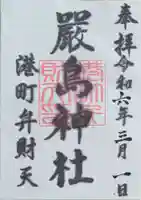 奉拝令和六年三月一日
嚴島神社
港町弁財天